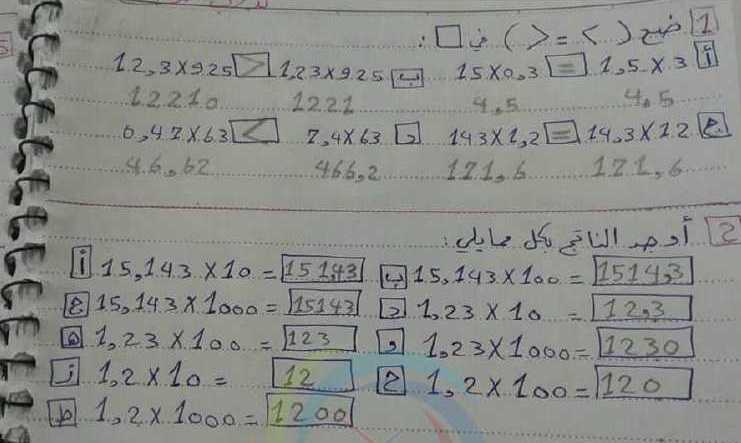 1 ضع ( > = < ) في □ :
أ 1,5 × 3 = 15×0,3 ب 1,23×925 > 12,3×925
4,5 4,5 1221 12210
ج 14,3×12 = 143×1,2 د 7,4×63 < 0,47×63
171,6 171,6 466,2 46,62
2 أوجد الناتج بكل مايلي :
أ 15,143 × 10 = 151,43 ب 15,143 × 100 = 1514,3
ج 15,143 × 1000 = 15143 د 1,23 × 10 = 12,3
ه 1,23 × 100 = 123 و 1,23 × 1000 = 1230
ز 1,2 × 10 = 12 ح 1,2 × 100 = 120
ط 1,2 × 1000 = 1200